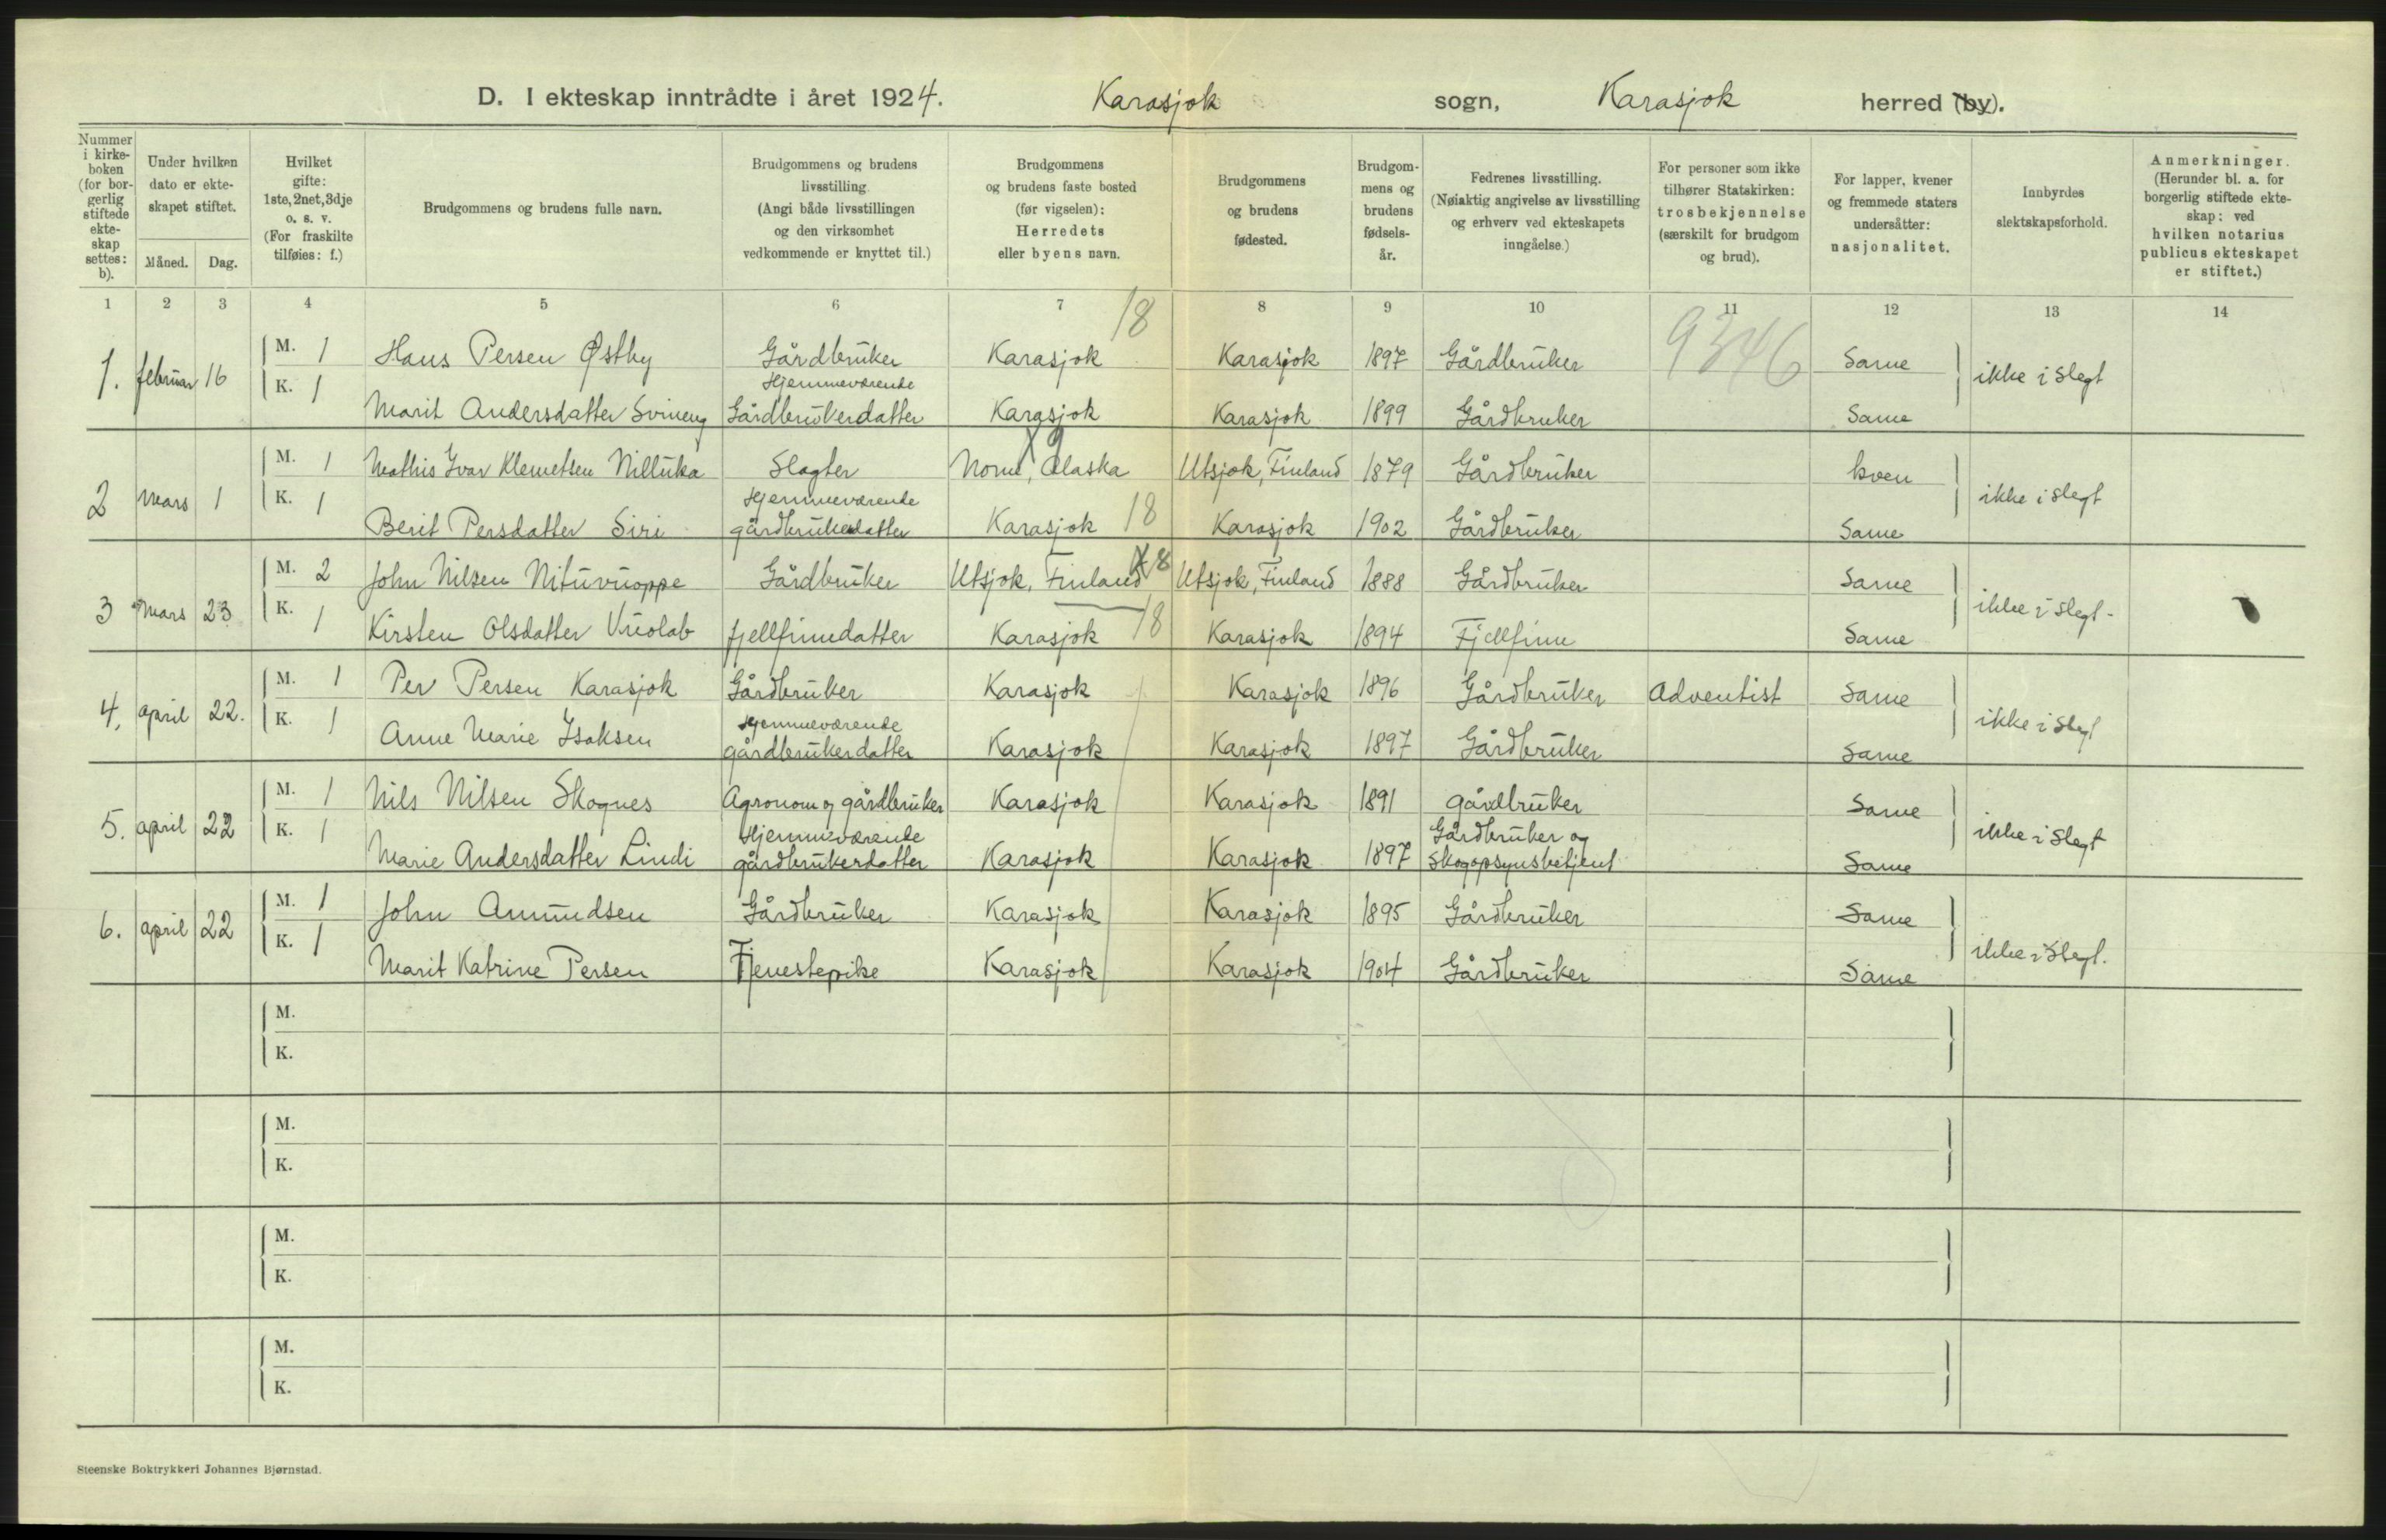 D. I ekteskap inntrådte i året 1924. Karasjok sogn, Karasjok herred (by).
Nummer i kirke-boken (for bor-gerlig stiftede ekte-skap settes: b).
Under hvilken dato er ekte-skapet stiftet.
Måned. Dag.
Hvilket gifte: 1ste, 2net, 3dje o. s. v. (For fraskilte tilføies: f.)
Brudgommens og brudens fulle navn.
Brudgommens og brudens livsstilling. (Angi både livsstillingen og den virksomhet vedkommende er knyttet til.)
Brudgommens og brudens faste bosted (før vigselen): Herredets eller byens navn.
Brudgommens og brudens fødested.
Brudgom-mens og brudens fødsels-år.
Fedrenes livsstilling. (Nøiaktig angivelse av livsstilling og erhverv ved ekteskapets inngåelse.)
For personer som ikke tilhører Statskirken: trosbekjennelse (særskilt for brudgom og brud).
For lapper, kvener og fremmede staters undersåtter: nasjonalitet.
Innbyrdes slektskapsforhold.
Anmerkninger. (Herunder bl. a. for borgerlig stiftede ekte-skap: ved hvilken notarius publicus ekteskapet er stiftet.)
1 2 3 4 5 6 7 8 9 10 11 12 13 14
18 9346
1. februar 16 M. 1 Hans Persen Østby Gårdbruker Karasjok Karasjok 1897 Gårdbruker Same ikke i slegt
K. 1 Marit Andersdatter Svineng Hjemmeværende Gårdbrukerdatter Karasjok Karasjok 1899 Gårdbruker Same
2 Mars 1 M. 1 Mathis Ivar Klemetsen Nilluka Slagter Nome, Alaska Utsjok, Finland 1879 Gårdbruker kven ikke i slegt
K. 1 Berit Persdatter Siri Hjemmeværende gårdbrukerdatter Karasjok 18 Karasjok 1902 Gårdbruker Same
3 Mars 23 M. 2 John Nilsen Nituvuoppe Gårdbruker Utsjok, Finland Utsjok, Finland 1888 Gårdbruker Same ikke i slegt.
K. 1 Kirsten Olsdatter Vuolab fjellfinnedatter Karasjok 18 Karasjok 1894 Fjellfinn Same
4. april 22. M. 1 Per Persen Karasjok Gårdbruker Karasjok Karasjok 1896 Gårdbruker Adventist Same ikke i slegt
K. 1 Anne Marie Isaksen Hjemmeværende gårdbrukerdatter Karasjok Karasjok 1897 Gårdbruker Same
5. april 22 M. 1 Nils Nilsen Skognes Agronom og gårdbruker Karasjok Karasjok 1891 gårdbruker Same ikke i slegt
K. 1 Marie Andersdatter Lindi Hjemmeværende gårdbrukerdatter Karasjok Karasjok 1897 Gårdbruker og skogopsynsbetjent Same
6. april 22 M. 1 John Amundsen Gårdbruker Karasjok Karasjok 1895 Gårdbruker Same ikke i slegt.
K. 1 Marit Katrine Persen Tjenestepike Karasjok Karasjok 1904 Gårdbruker Same
M.
K.
M.
K.
M.
K.
M.
K.
Steenske Boktrykkeri Johannes Bjørnstad.